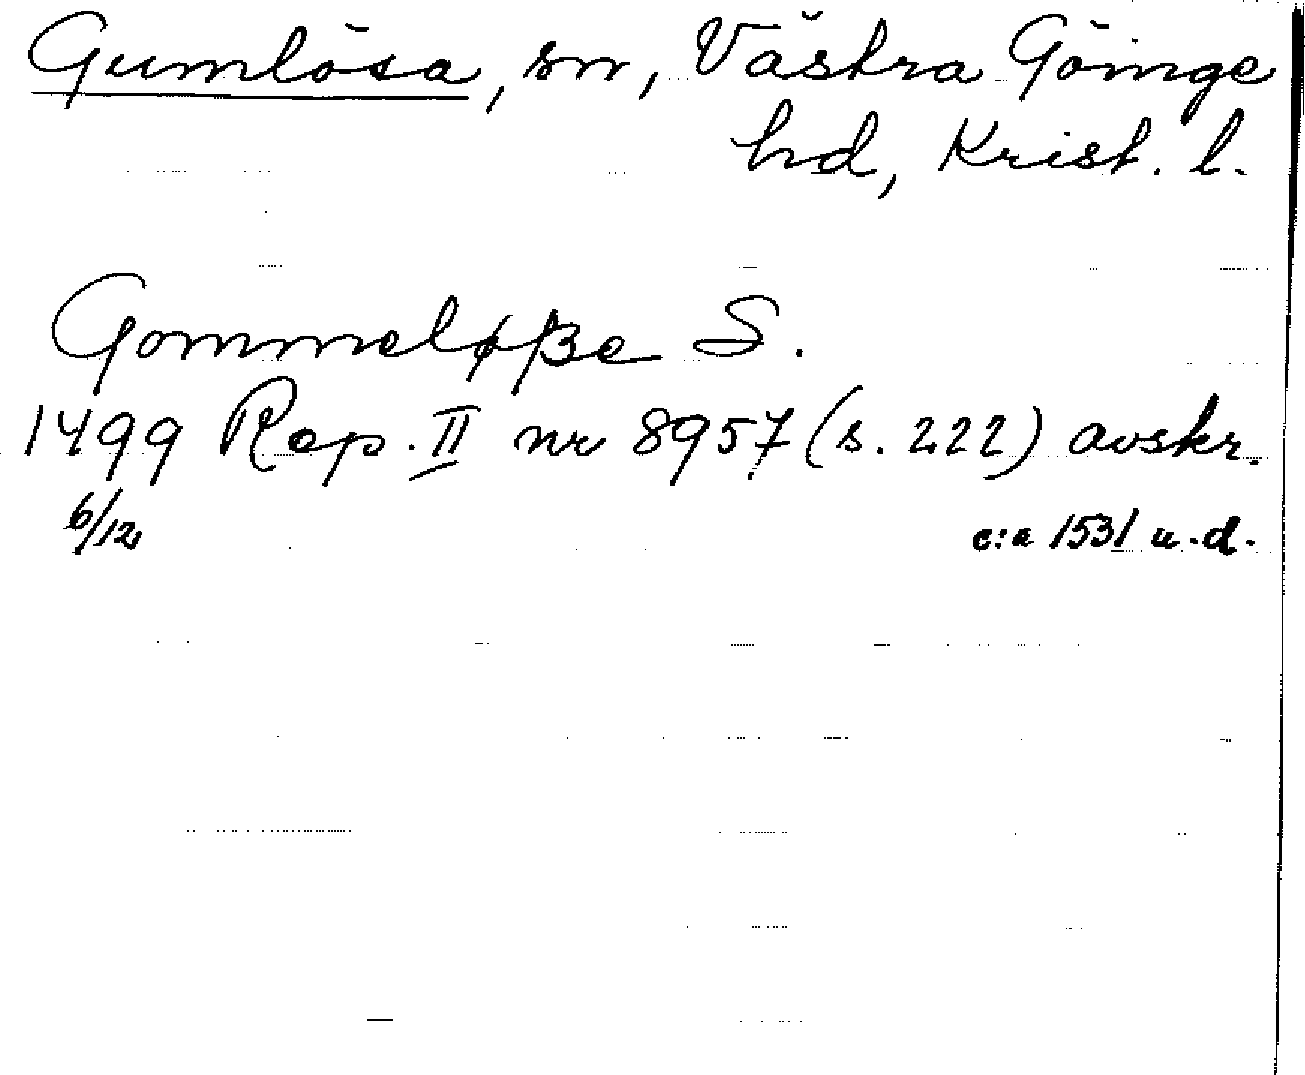 Gumlösa, sn, Västra Göinge
hd, Krist. l.
Gommeløße S.
1499 Rep. II nr 8957 (s. 222) avskr.
6/12 c:a 1531 u.d.